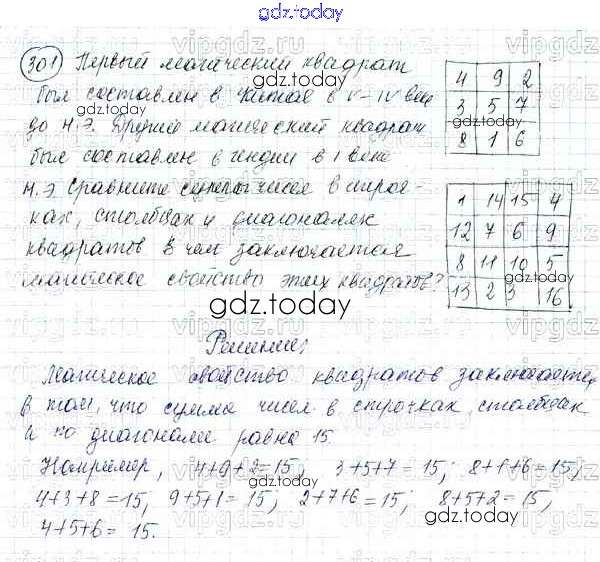 gdz.today
301 Первый магический квадрат
был составлен в Китае в V-IV веке
до н.э. Второй магический квадрат
был составлен в Индии в I веке
н.э. Сравните суммы чисел в строч-
ках, столбцах и диагоналях
квадратов. В чем заключается
магическое свойство этих квадратов?
4 9 2
3 5 7
8 1 6
1 14 15 4
12 7 6 9
8 11 10 5
13 2 3 16
gdz.today
Решение:
Магическое свойство квадратов заключается
в том, что сумма чисел в строчках, столбцах
и по диагонали равна 15.
Например, 4+9+2=15; 3+5+7=15; 8+1+6=15;
4+3+8=15; 9+5+1=15; 2+7+6=15; 8+5+2=15;
4+5+6= 15.
gdz.today